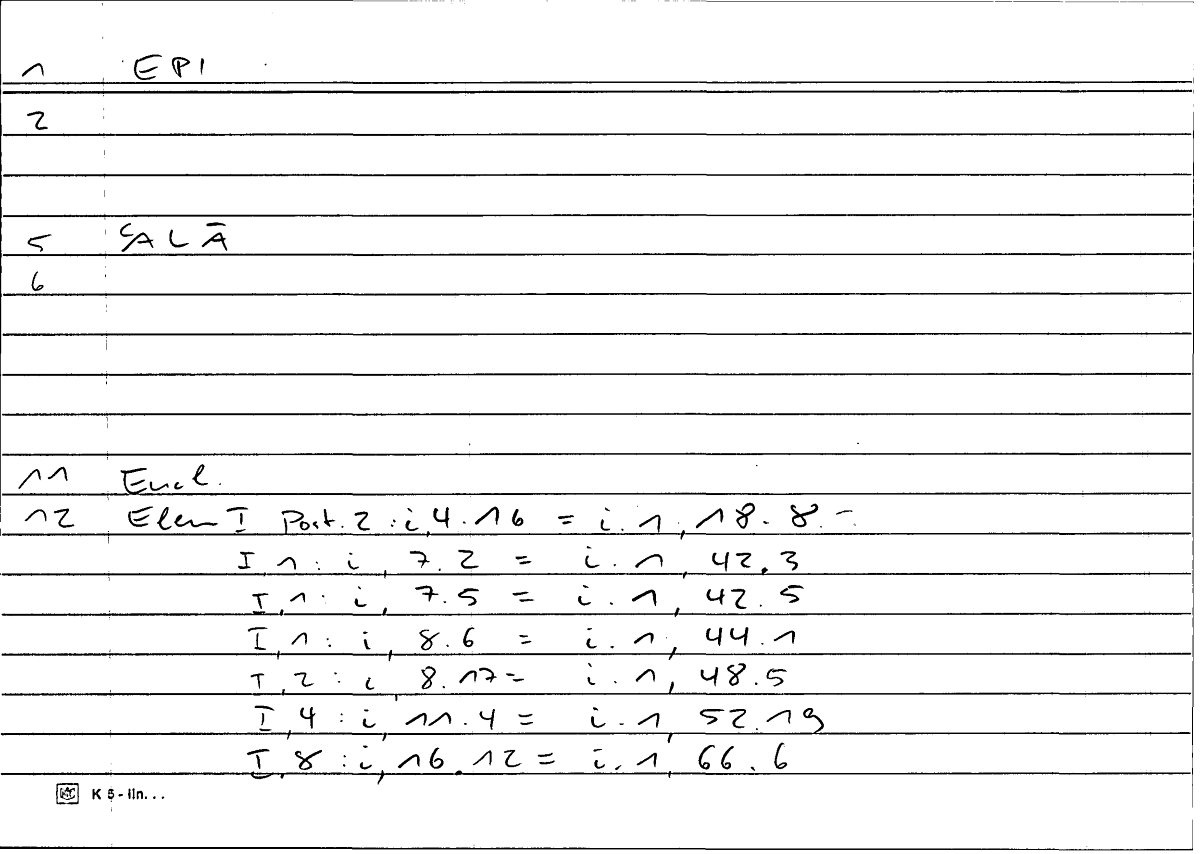 1 EPI
2
5 ʿALĀ
6
11 Eucl.
12 Elem I Post. 2 : i, 4.16 = i.1, 18.8.-
I, 1 : i, 7.2 = i.1, 42.3
I, 1 : i, 7.5 = i.1, 42.5
I, 1 : i, 8.6 = i.1, 44.1
I, 2 : i, 8.17 = i.1, 48.5
I, 4 : i, 11.4 = i.1, 52.19
I, 8 : i, 16.12 = i.1, 66.6
K 5 - lin...